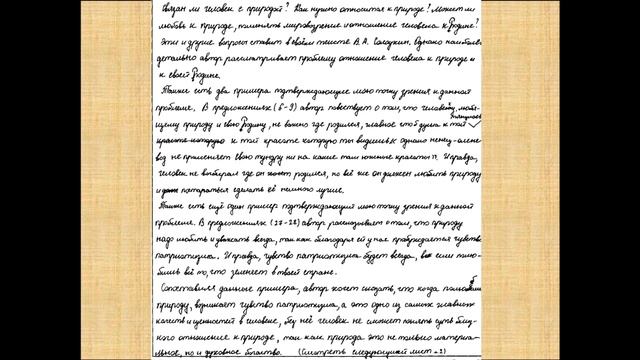 Связан ли человек с природой? Как нужно относится к природе? Может ли
любовь к природе, поменять мировоззрение и отношение человека к Родине?
Эти и другие вопросы ставит в своём тексте В.А. Солоухин. Однако наиболее
детально автор рассматривает проблему отношение человека к природе и
к своей Родине.
Также есть два примера подтверждающие мою точку зрения к данной
проблеме. В предложениях (6-9) автор повествует о том, что человеку, любя-
щему природу и свою Родину, не важно где родился, главное чтоб душа к той
тянулась
красоте которую к той красоте которую ты видишь. Однако ненец-олене-
вод не променяет свою тундру ни на какие там южные красоты. И правда,
человек не выбирал где он родился, но всё же он должен любить природу
и постараться сделать её немного лучше.
Также есть ещё один пример подтверждающий мою точку зрения к данной
проблеме. В предложениях (17-22) автор рассказывает о том, что природу
надо любить и уважать всегда, так как благодаря ей у нас пробуждается чувство
патриотизма. И правда, чувство патриотизма будет всегда, если полю-
бишь всё то, что зеленеет в твоей стране.
Сопоставив данные примера, автор хочет сказать, что когда полюбишь
природу, возникает чувство патриотизма, а это одно из самых главных
качеств и ценностей в человеке, без неё человек не сможет понять суть
отношение к природе, так как природа это не только матери-
альное, но и духовное благство. (Смотреть следующий лист - 2)